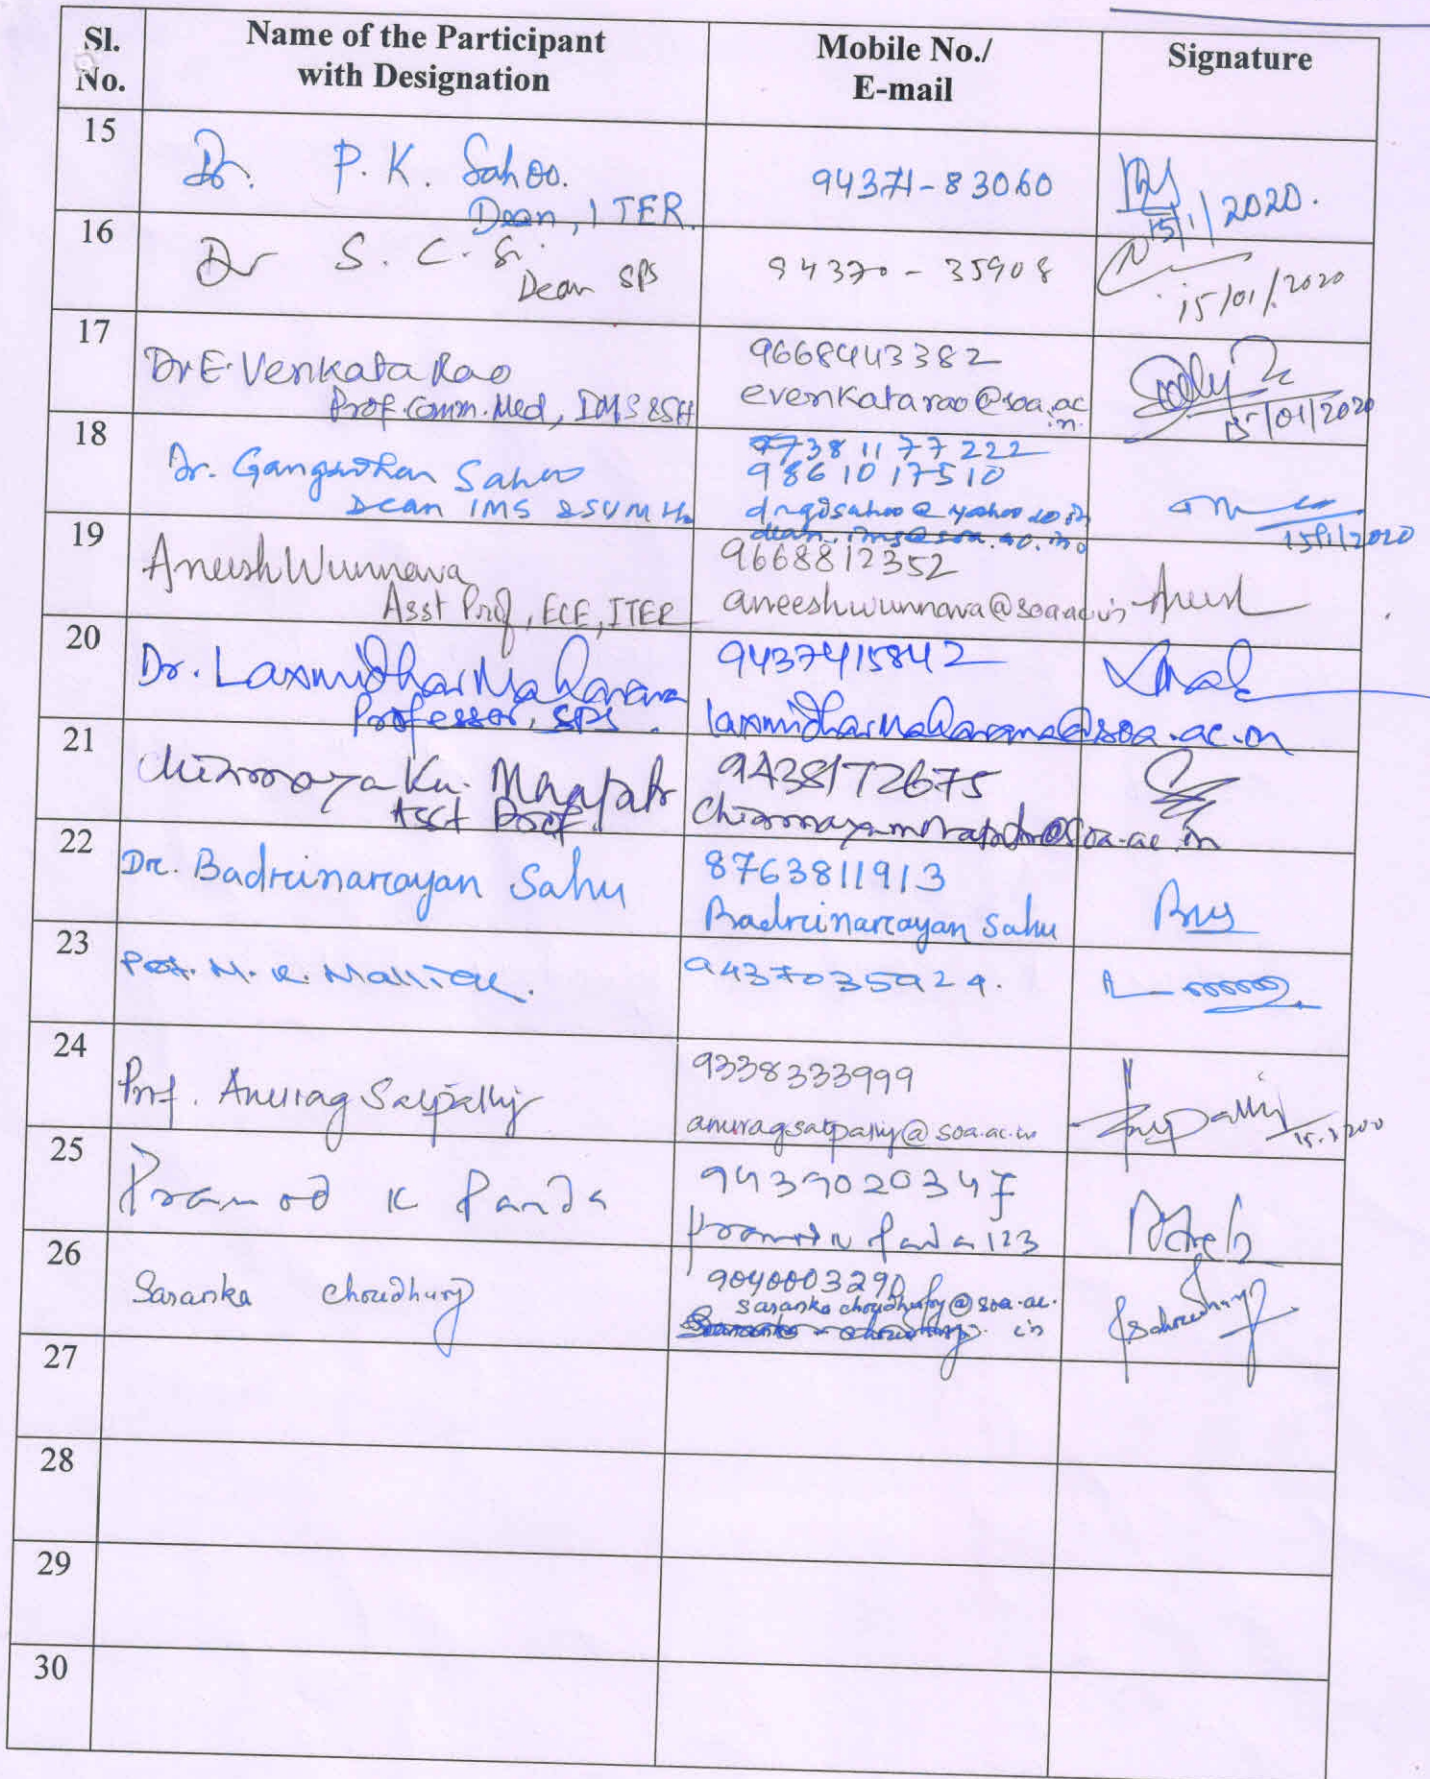 Sl. No.
Name of the Participant with Designation
Mobile No./ E-mail
Signature
15
Dr. P. K. Sahoo.
Dean, ITER.
94371-83060
15/1/2020.
16
Dr S. C. Si.
Dean SPS
94370-35908
15/01/2020
17
Dr E. Venkata Rao
Prof. Comm. Med, IMS &SH
9668443382
evenkatarao@soa.ac
.in.
15/01/2020
18
Dr. Gangadhar Sahoo
Dean IMS &SUMH
7738 11 77 222
98610 17510
drgdsahoo@yahoo.co.in
dean.ims@soa.ac.in
15/1/2020
19
Aneesh Wunnava
Asst Prof, ECE, ITER
9668812352
aneeshwunnava@soa.ac.in
20
Dr. Laxmidhar Maharana
Professor, SPS.
9437415842
laxmidharmaharana@soa.ac.in
21
Chinmaya Ku. Mohapatr
Asst Prof.
9438172675
22
Dr. Badrinarayan Sahu
8763811913
Badrinarayan Sahu
23
Prof. M. K. Mallick.
9437035924.
24
Prof. Anurag Satpathy
9338333999
anuragsatpathy@soa.ac.in
25
Pramod K Panda
9439020347
26
Saranka Choudhury
9040003290
saranka choudhury@soa.ac.
in
27
28
29
30